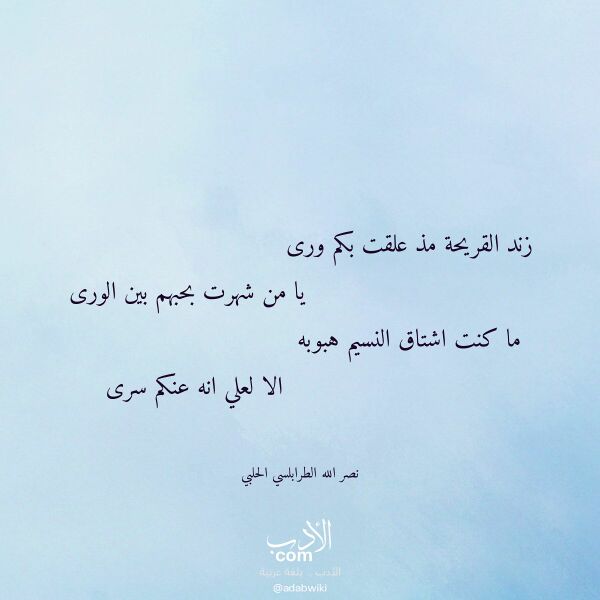 زند القريحة مذ علقت بكم ورى
يا من شهرت بحبهم بين الورى
ما كنت اشتاق النسيم هبوبه
الا لعلي انه عنكم سرى
نصر الله الطرابلسي الحلبي
الأدب
com
الأدب .. بلغة عربية
@adabwiki